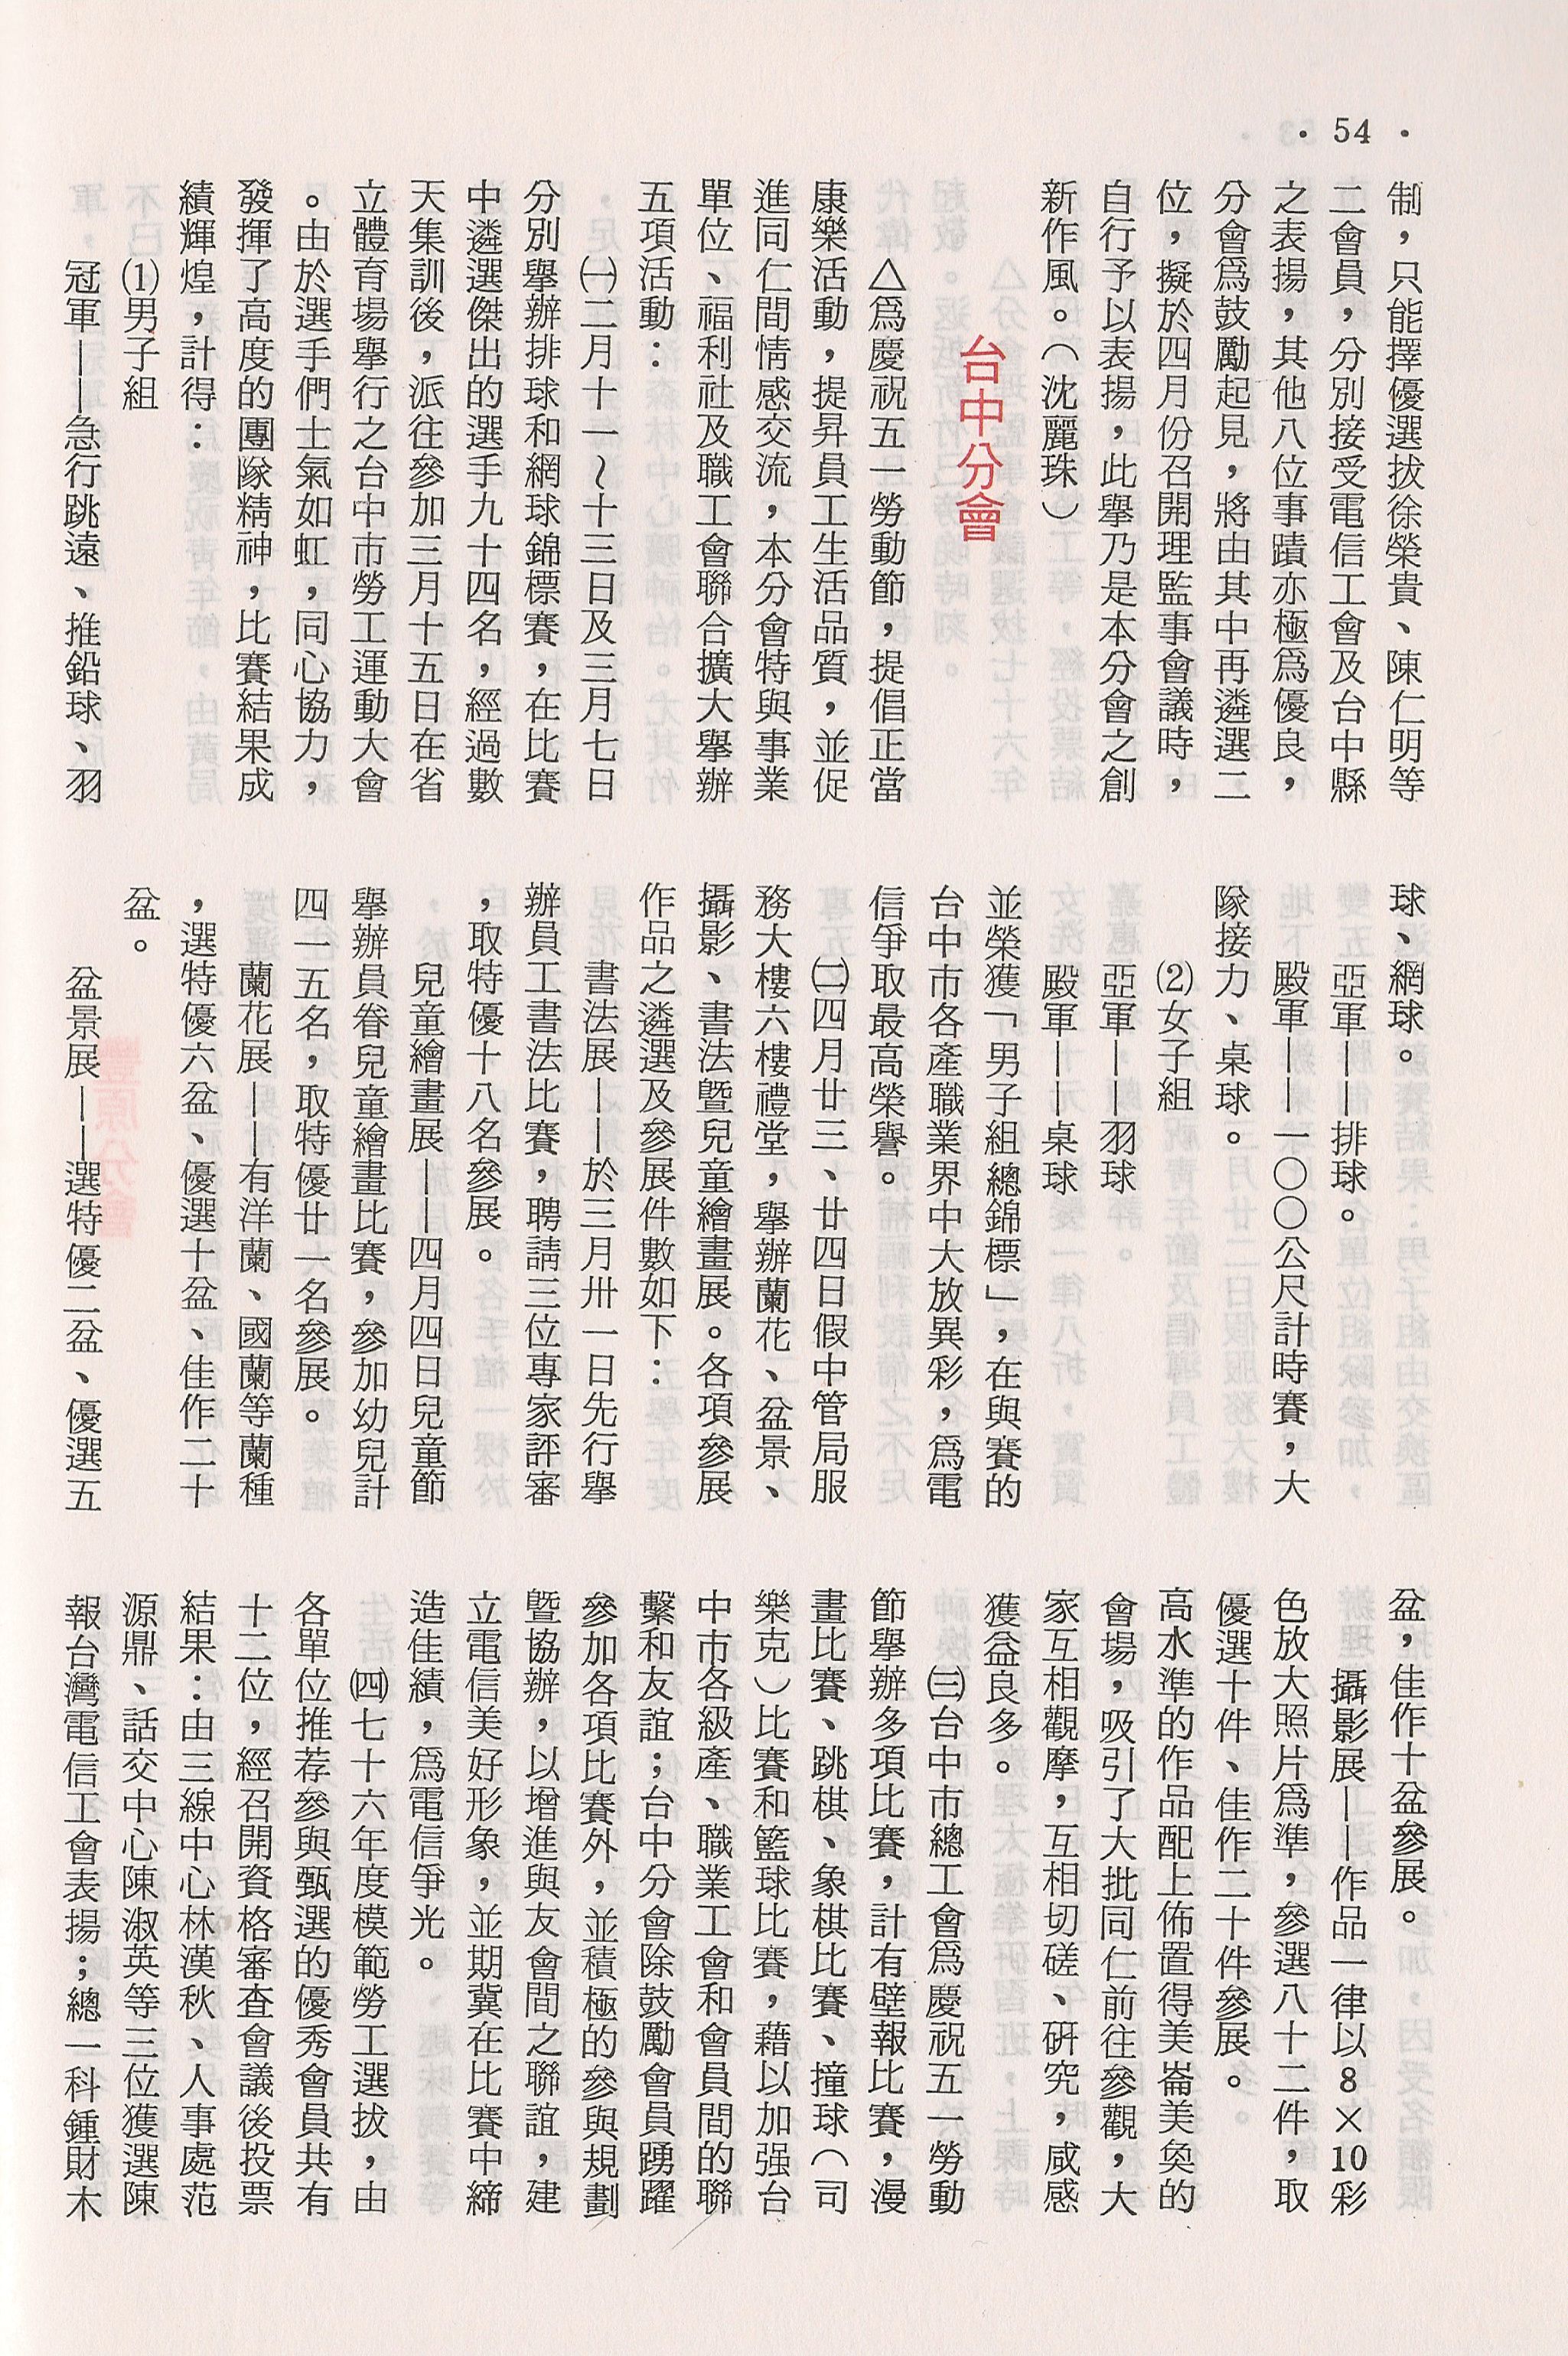 · 54 ·
制，只能擇優選拔徐榮貴、陳仁明等
二會員，分別接受電信工會及台中縣
之表揚，其他八位事蹟亦極爲優良，
分會爲鼓勵起見，將由其中再遴選二
位，擬於四月份召開理監事會議時，
自行予以表揚，此舉乃是本分會之創
新作風。（沈麗珠）
台中分會
△爲慶祝五一勞動節，提倡正當
康樂活動，提昇員工生活品質，並促
進同仁間情感交流，本分會特與事業
單位、福利社及職工會聯合擴大舉辦
五項活動：
㈠二月十一~十三日及三月七日
分別舉辦排球和網球錦標賽，在比賽
中遴選傑出的選手九十四名，經過數
天集訓後，派往參加三月十五日在省
立體育場舉行之台中市勞工運動大會
。由於選手們士氣如虹，同心協力，
發揮了高度的團隊精神，比賽結果成
績輝煌，計得：
⑴男子組
冠軍——急行跳遠、推鉛球、羽
球、網球。
亞軍——排球。
殿軍——一〇〇公尺計時賽，大
隊接力、桌球。
⑵女子組
亞軍——羽球
殿軍——桌球
並榮獲「男子組總錦標」，在與賽的
台中市各產職業界中大放異彩，爲電
信爭取最高榮譽。
㈡四月廿三、廿四日假中管局服
務大樓六樓禮堂，舉辦蘭花、盆景、
攝影、書法暨兒童繪畫展。各項參展
作品之遴選及參展件數如下：
書法展——於三月卅一日先行舉
辦員工書法比賽，聘請三位專家評審
，取特優十八名參展。
兒童繪畫展——四月四日兒童節
舉辦員眷兒童繪畫比賽，參加幼兒計
四一五名，取特優廿一名參展。
蘭花展——有洋蘭、國蘭等蘭種
，選特優六盆、優選十盆、佳作二十
盆。
盆景展——選特優二盆、優選五
盆，佳作十盆參展。
攝影展——作品一律以8×10彩
色放大照片爲準，參選八十二件，取
優選十件、佳作二十件參展。
高水準的作品配上佈置得美崙美奐的
會場，吸引了大批同仁前往參觀，大
家互相觀摩，互相切磋、研究，咸感
獲益良多。
㈢台中市總工會爲慶祝五一勞動
節舉辦多項比賽，計有壁報比賽，漫
畫比賽、跳棋、象棋比賽、撞球（司
樂克）比賽和籃球比賽，藉以加强台
中市各級產、職業工會和會員間的聯
繫和友誼；台中分會除鼓勵會員踴躍
參加各項比賽外，並積極的參與規劃
暨協辦，以增進與友會間之聯誼，建
立電信美好形象，並期冀在比賽中締
造佳績，爲電信爭光。
㈣七十六年度模範勞工選拔，由
各單位推荐參與甄選的優秀會員共有
十二位，經召開資格審查會議後投票
結果：由三線中心林漢秋、人事處范
源鼎、話交中心陳淑英等三位獲選陳
報台灣電信工會表揚；總一科鍾財木